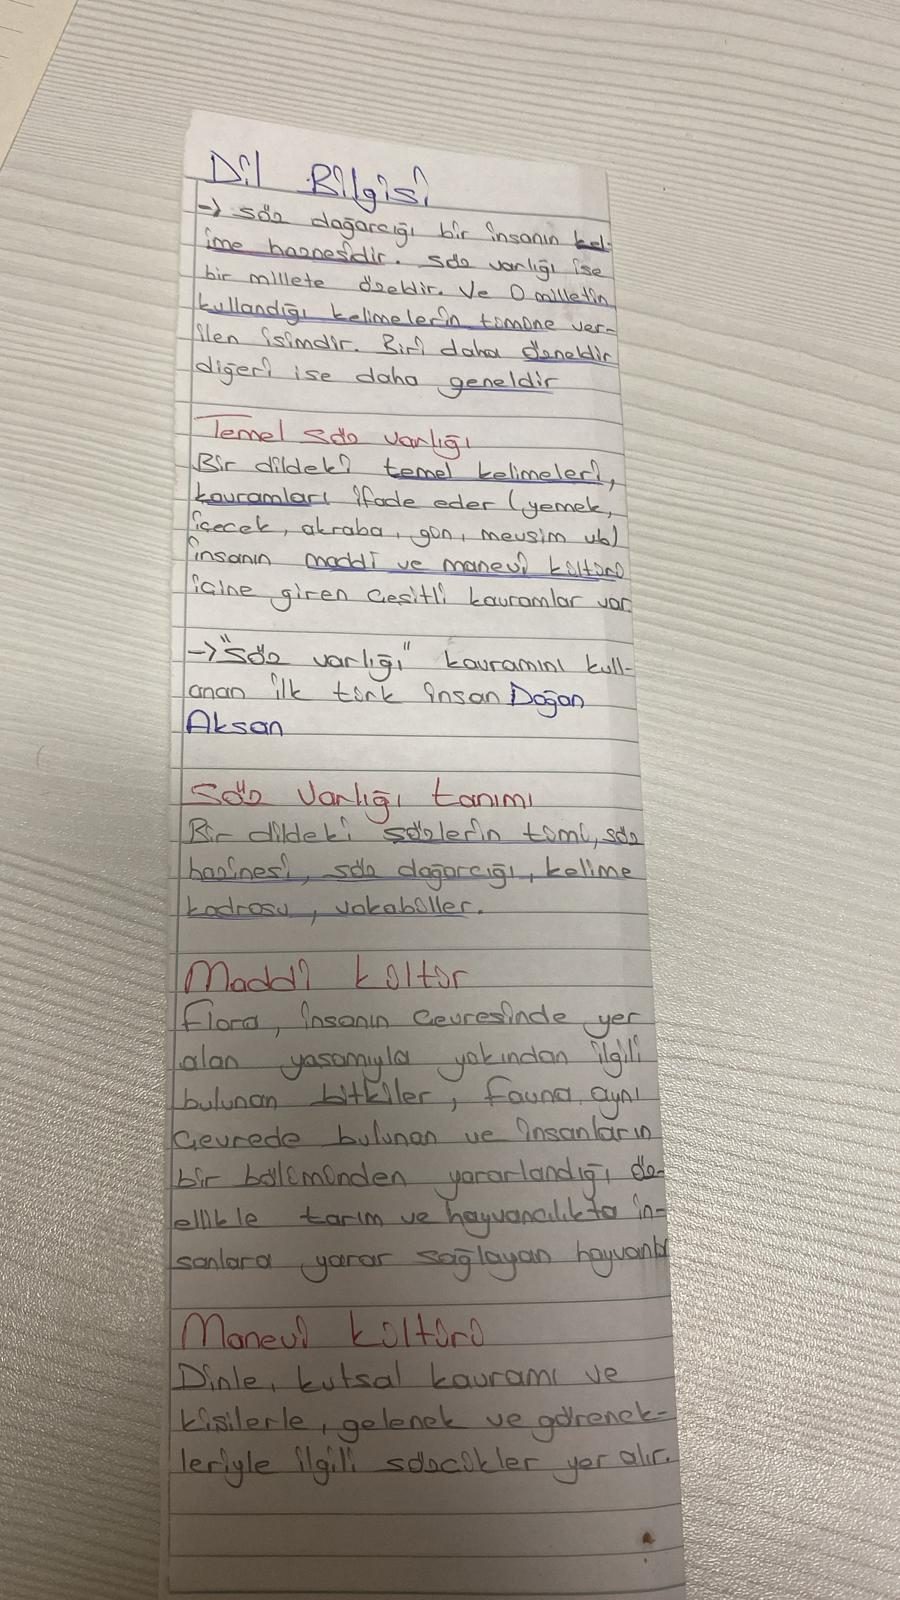 Dil Bilgisi
→ söz dağarcığı bir insanın kel-
ime haznesidir. söz varlığı ise
bir millete özeldir. Ve O milletin
kullandığı kelimelerin tümüne ver-
ilen isimdir. Biri daha özneldir
diğeri ise daha geneldir
Temel söz varlığı
Bir dildeki temel kelimeleri,
kavramları ifade eder (yemek,
içecek, akraba, gün, mevsim vb)
insanın maddi ve manevi kültürü
içine giren çeşitli kavramlar var
→ "söz varlığı" kavramını kull-
anan ilk türk insan Doğan
Aksan
Söz Varlığı tanımı
Bir dildeki sözlerin tümü, söz
hazinesi, söz dağarcığı, kelime
kadrosu, vokabüller.
Maddi kültür
Flora, insanın çevresinde yer
alan yaşamıyla yakından ilgili
bulunan bitkiler, fauna, aynı
çevrede bulunan ve insanların
bir bölümünden yararlandığı öz-
ellikle tarım ve hayvancılıkta in-
sanlara yarar sağlayan
Manevi kültürü
Dinle, kutsal kavramı ve
kişilerle, gelenek ve görenek-
leriyle ilgili sözcükler yer alır.